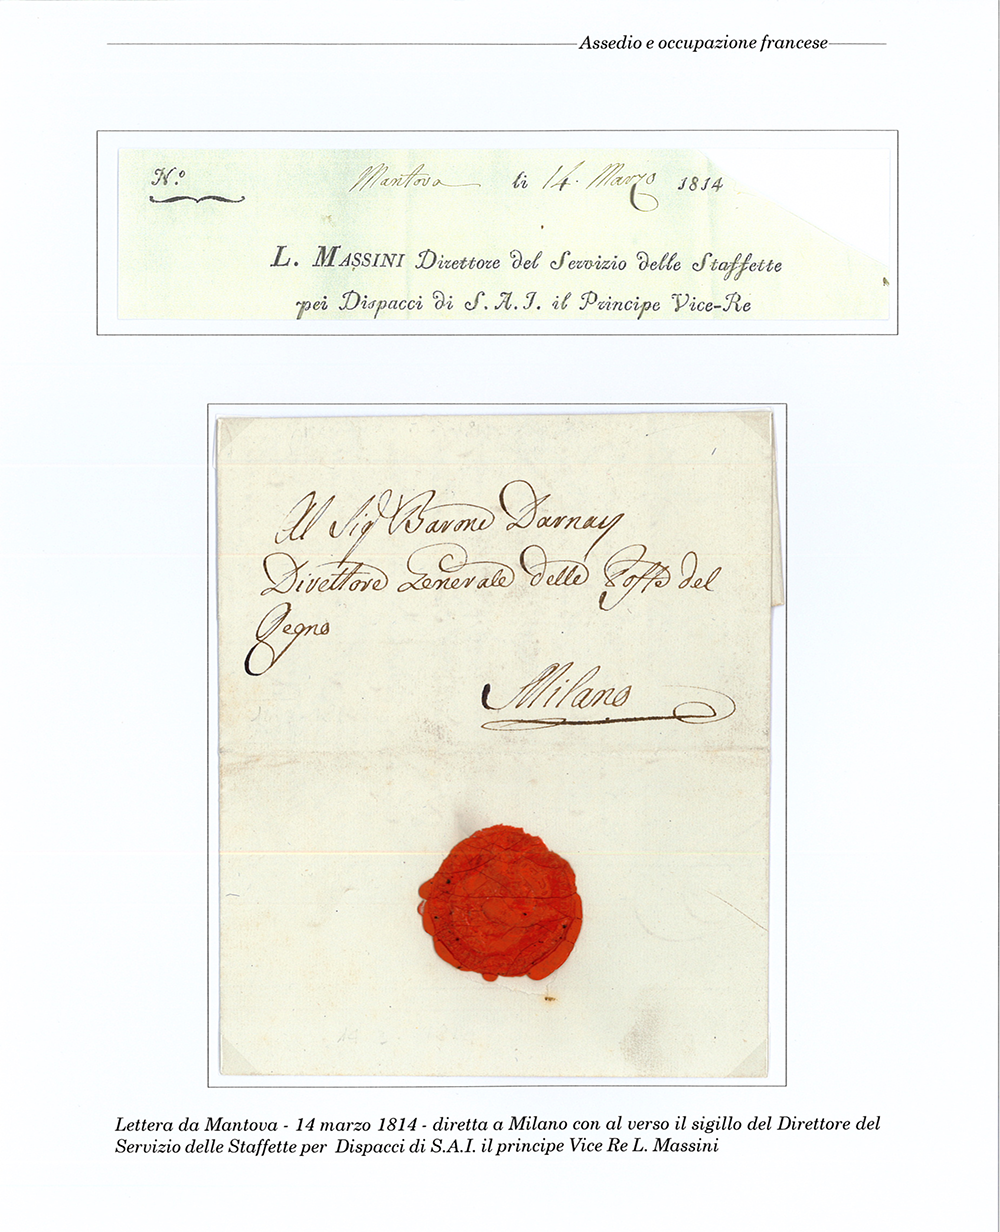 Assedio e occupazione francese
N.º Mantova li 14. Marzo 1814
L. MASSINI Direttore del Servizio delle Staffette
pei Dispacci di S. A. I. il Principe Vice-Re
Al Sigʳ Barone Darnay
Direttore Generale delle Poste del
Regno
Milano
Lettera da Mantova - 14 marzo 1814 - diretta a Milano con al verso il sigillo del Direttore del
Servizio delle Staffette per Dispacci di S.A.I. il principe Vice Re L. Massini